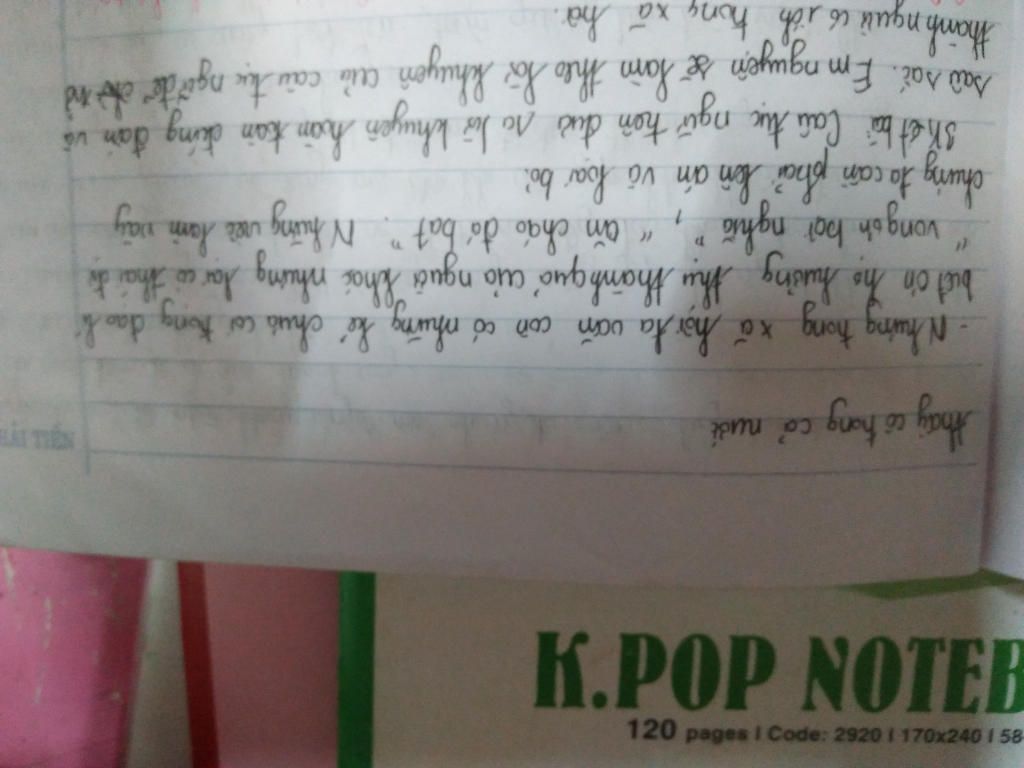 thầy cô trong cả nước
- Nhưng trong xã hội ta vẫn còn có những kẻ chưa coi trọng đạo lí
biết ơn họ hưởng thụ thành quả của người khác nhưng lại có thái độ
"vong ơn bội nghĩa", "ăn cháo đá bát". Những việc làm vậy
chúng ta cần phải lên án và loại bỏ.
3 Kết bài Câu tục ngữ trên đưa ra lời khuyên hoàn toàn đúng đắn và
sâu sắc. Em nguyện sẽ làm theo lời khuyên của câu tục ngữ để trở
thành người có ích trong xã hội.
HẢI TIẾN
K.POP NOTEB
120 pages I Code: 2920 I 170x240 I 58